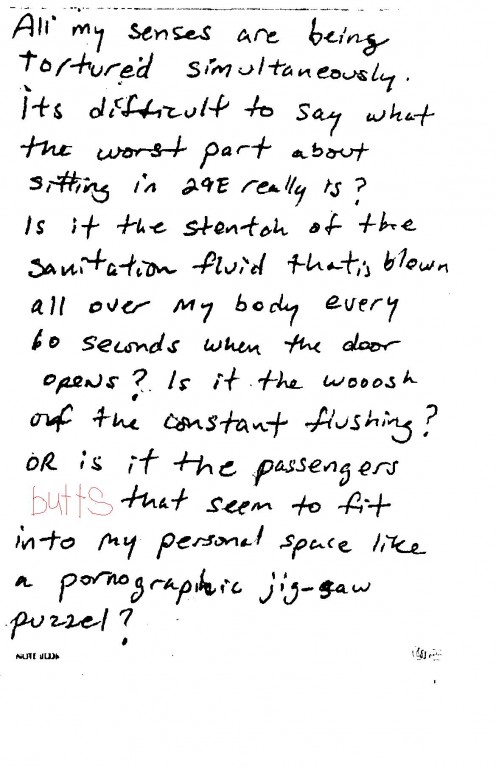 All my senses are being
tortured simultaneously.
its difficult to say what
the worst part about
sitting in 29E really is?
Is it the stentch of the
sanitation fluid that is blown
all over my body every
60 seconds when the door
opens? Is it the wooosh
of the constant flushing?
OR is it the passengers
butts that seem to fit
into my personal space like
a pornographic jig-saw
puzzel?